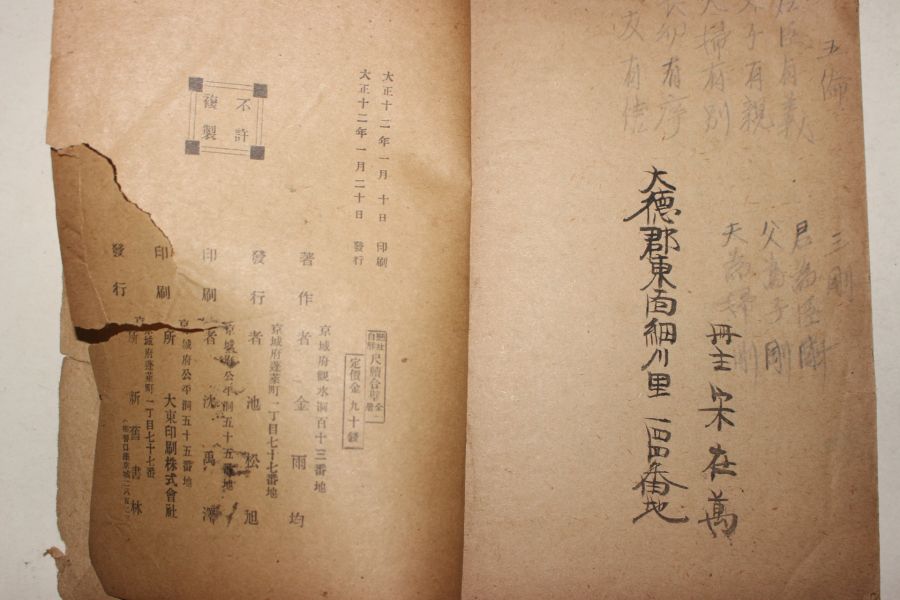 五倫
君臣有義
父子有親
夫婦有別
長幼有序
友有信
三剛
君爲臣剛
父爲子剛
夫爲婦剛
冊主 宋在萬
大德郡東面細川里 番地
大正十二年一月 十日 印刷
大正十二年一月二十日 發行
不許
複製
尺牘合璧
定價金九十錢
京城府觀水洞百十三番地
著作者 金雨均
京城府蓬萊町一丁目七十七番地
發行者 池松旭
京城府公平洞五十五番地
印刷者 沈禹澤
京城府公平洞五十五番地
印刷所 大東印刷株式會社
京城府蓬萊町一丁目七十七番
發行所 新舊書林